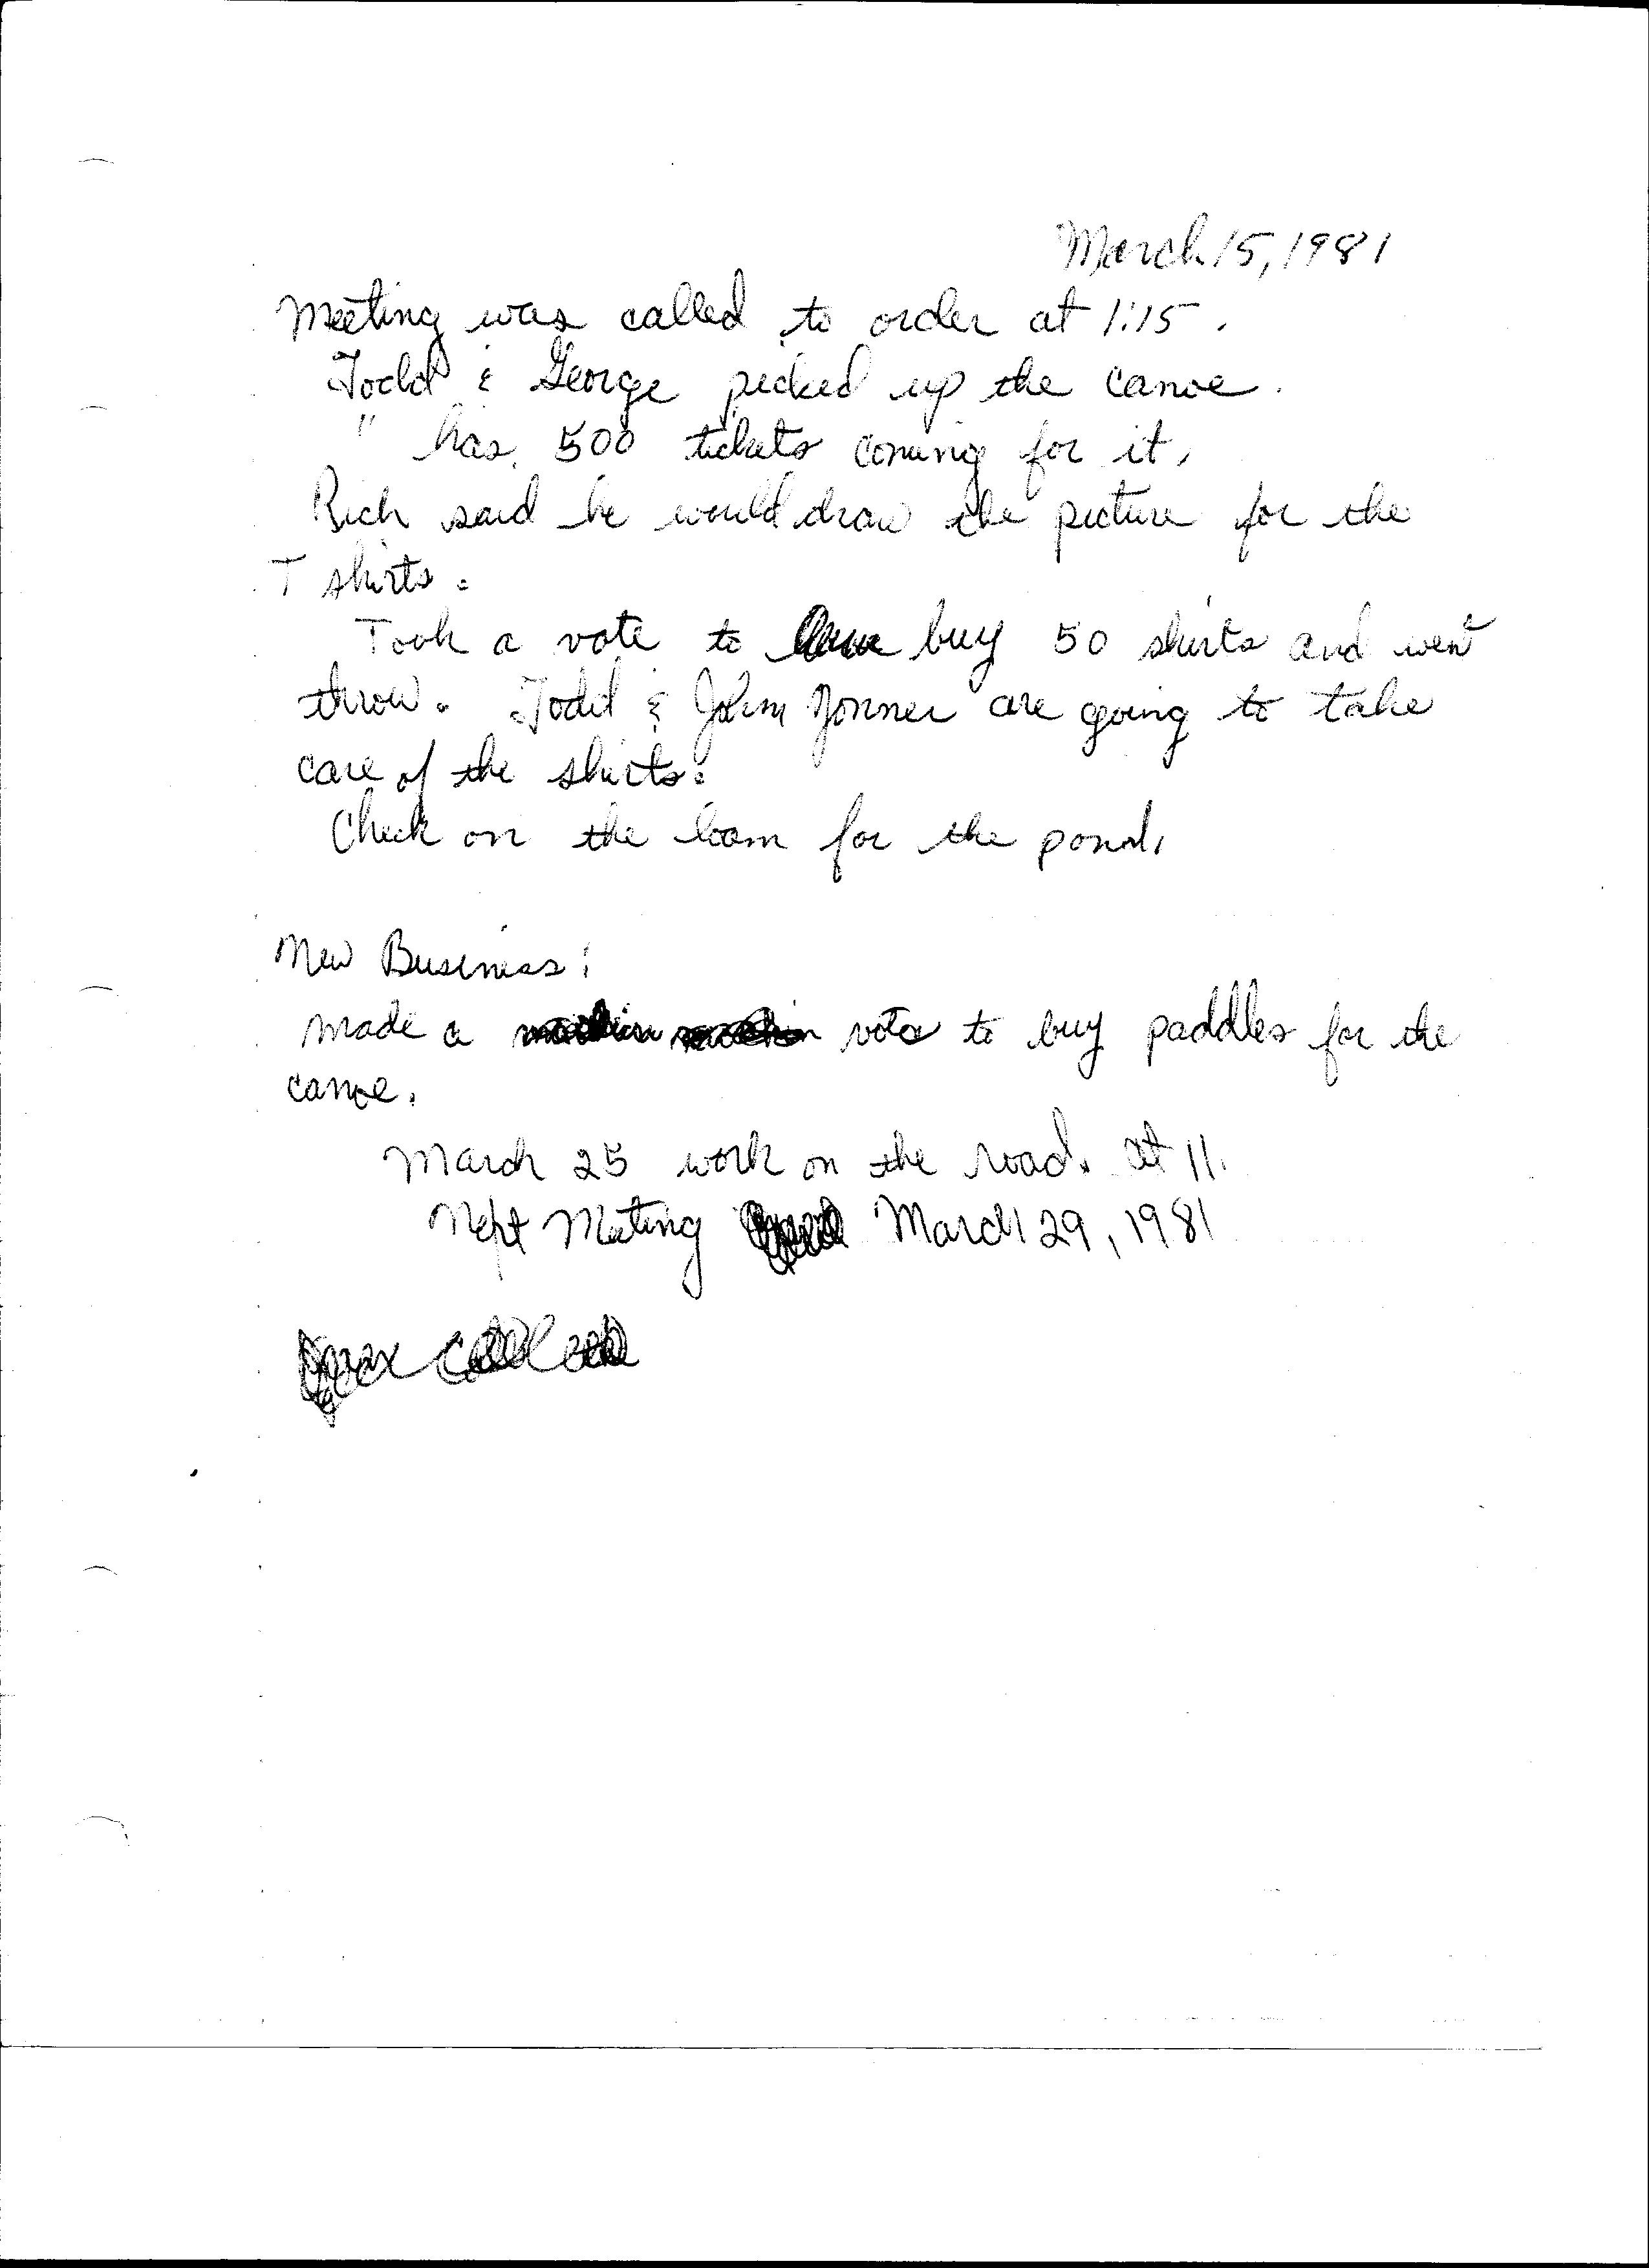 March 15, 1981
Meeting was called to order at 1:15.
Todd & George picked up the canoe.
" has 500 tickets coming for it.
Rich said he would draw the picture for the
T shirts.
Took a vote to buy 50 shirts and went
throw. Todd & John are going to take
care of the shirts.
Check on the loam for the pond.
New Business:
made a vote to buy paddles for the
canoe.
March 25 work on the road. at 11.
Next Meeting March 29, 1981